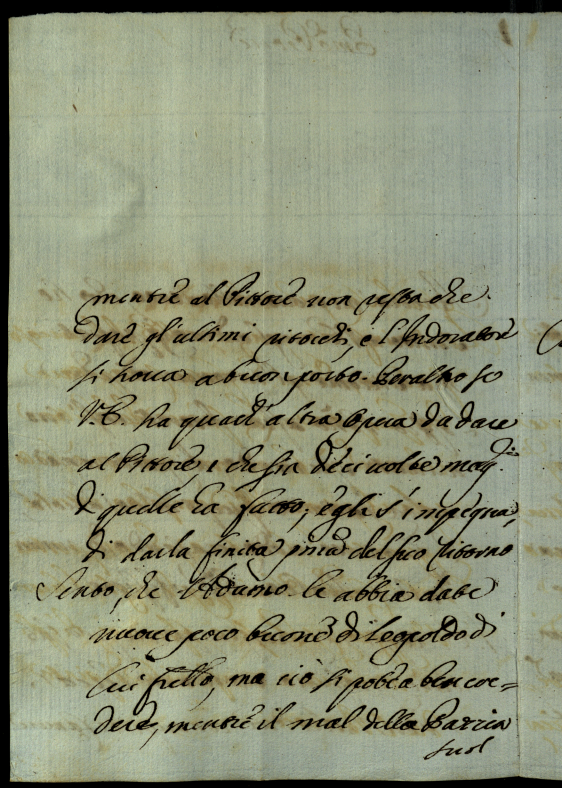 mentre al Pittore non resta che
dare gl'ultimi ritocchi, e l'Indoratore
si trova a buon porto. Peraltro se
V.E. ha qualch'altra Opera da dare
al Pittore, e che sia dieci volte magg.re
di quelle ha fatto, egli s'impegna,
di darla finita prima del suo ritorno
Sento, che l'Adamo le abbia date
nuove poco buone di Leopoldo di
Lui fratello, ma ciò si potea ben cre=
dere, mentre il mal della Pazzia
suol